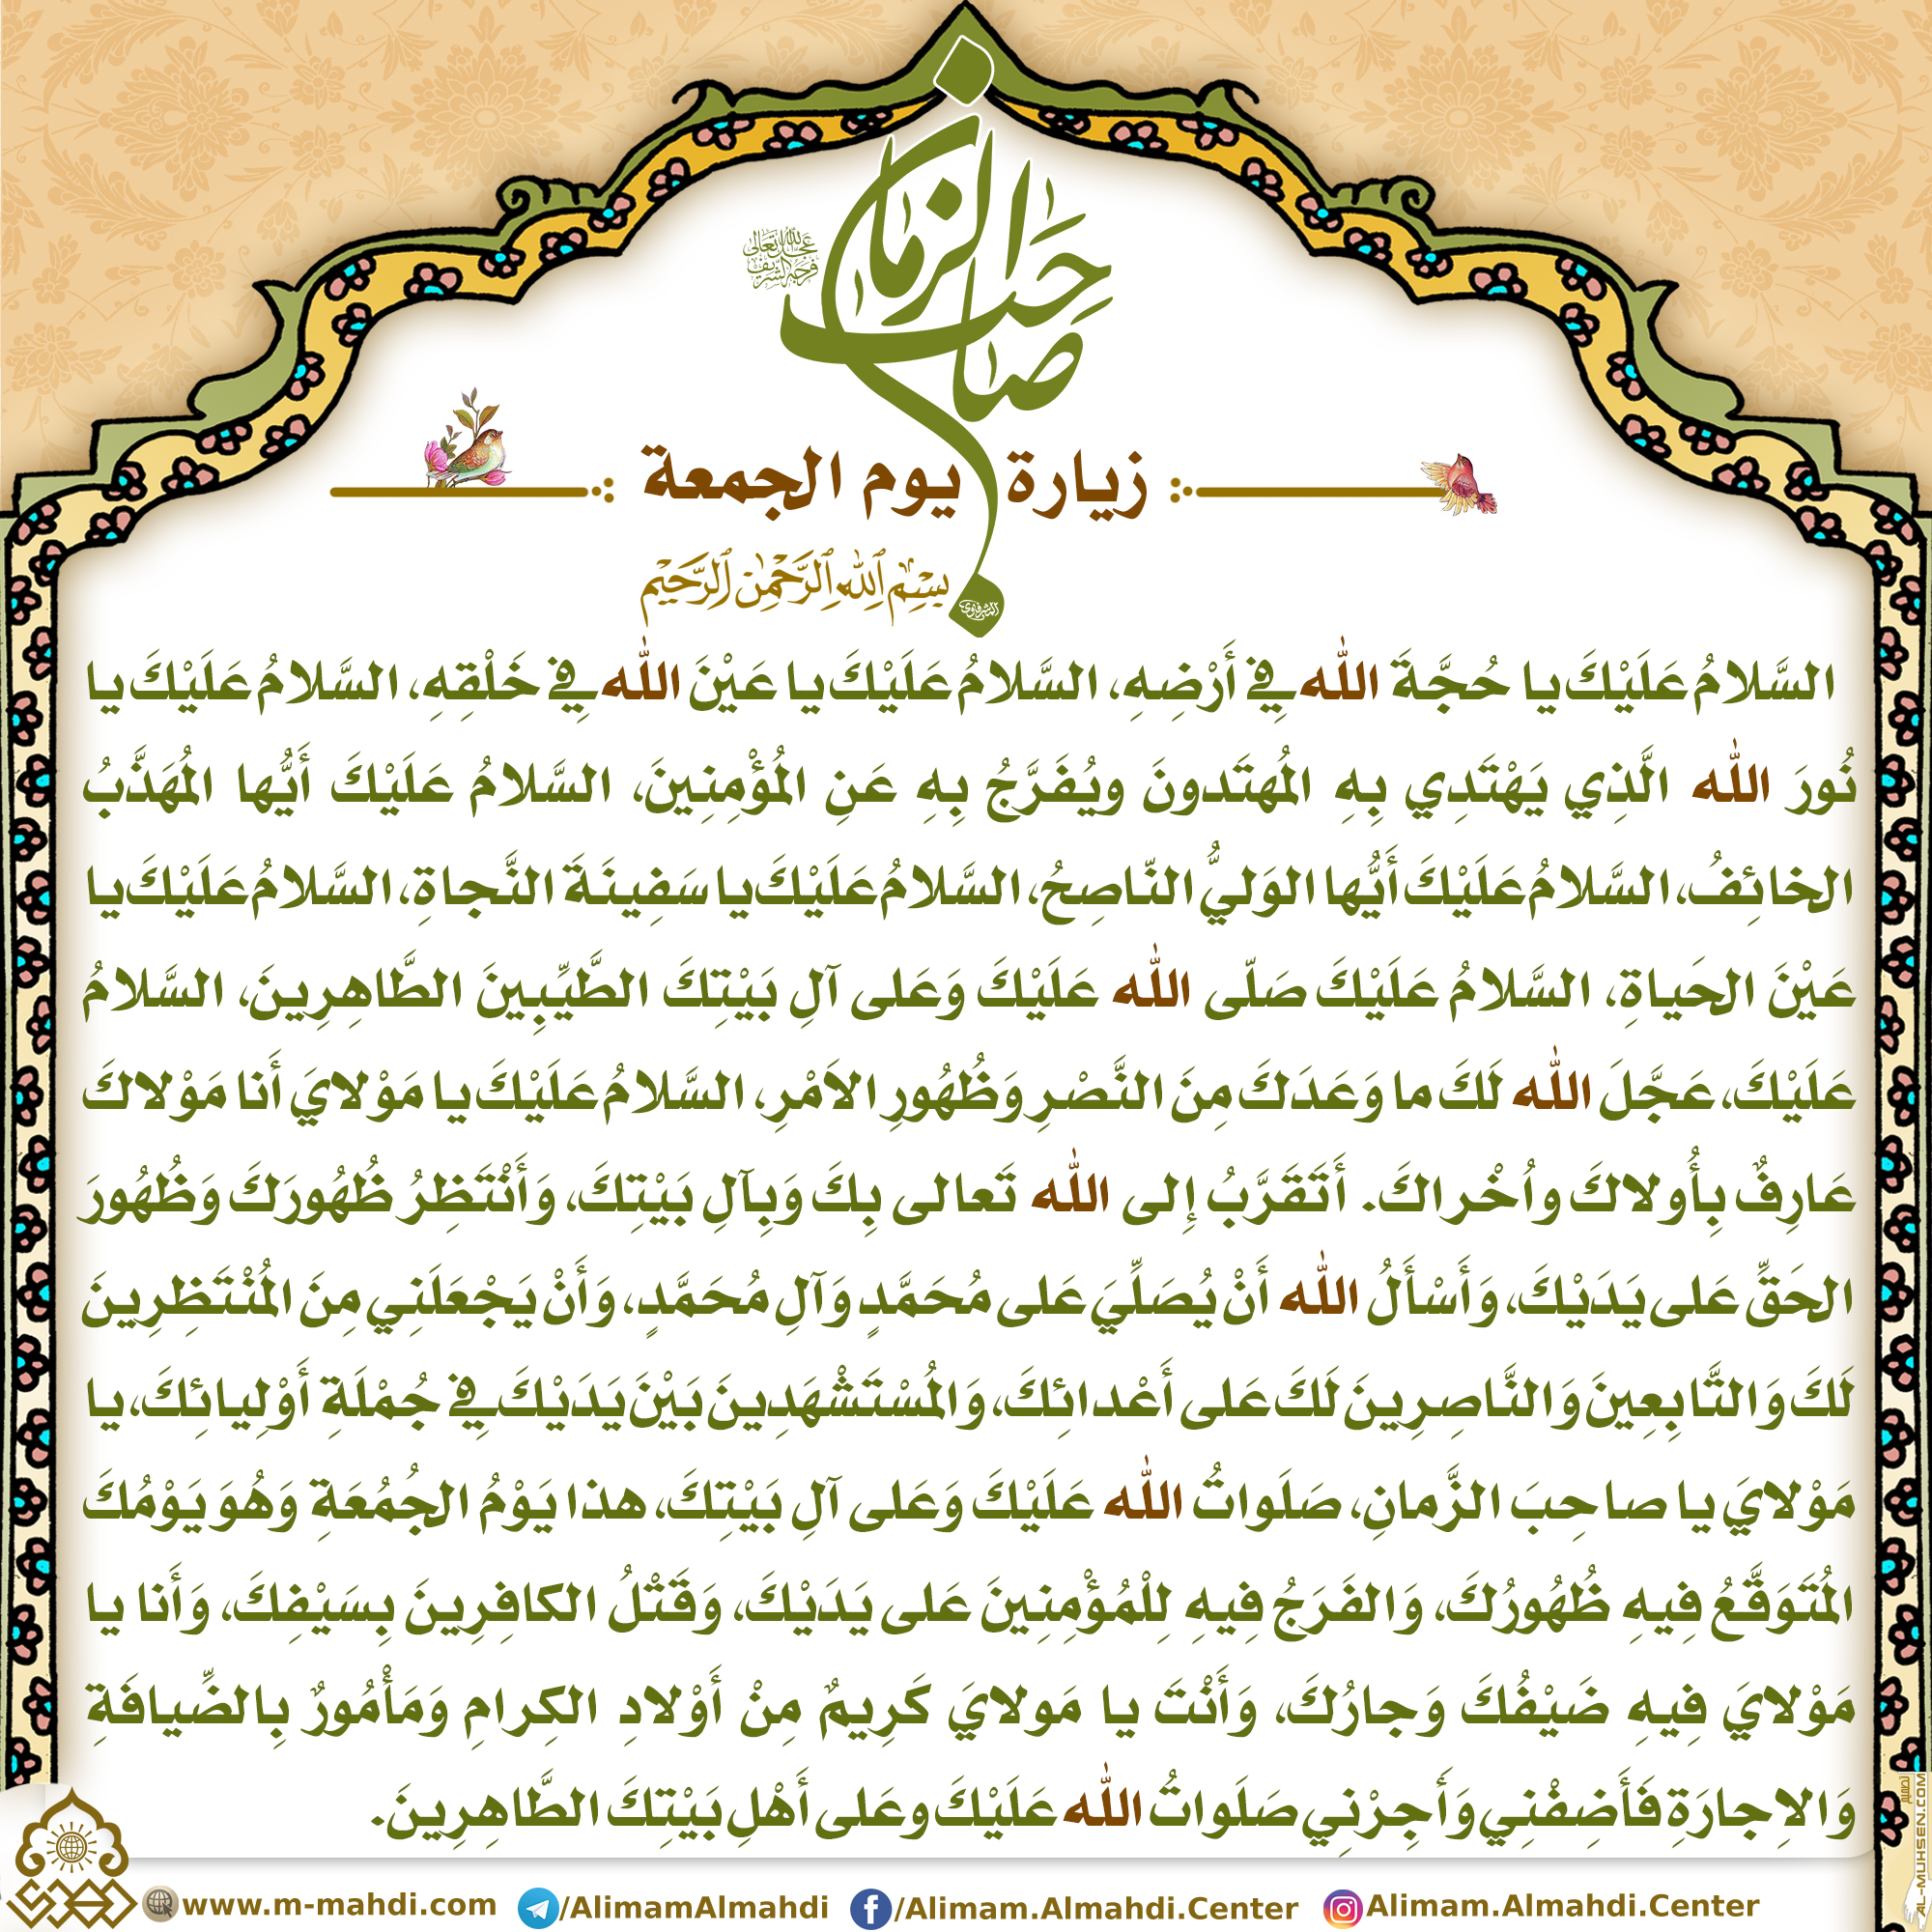 صاحب الزمان
عجل الله تعالى
فرجه الشريف
زيارة يوم الجمعة
بِسْمِ ٱللَّهِ ٱلرَّحْمَٰنِ ٱلرَّحِيمِ
السَّلامُ عَلَيْكَ يا حُجَّةَ الله فِي أَرْضِهِ، السَّلامُ عَلَيْكَ يا عَيْنَ الله فِي خَلْقِهِ، السَّلامُ عَلَيْكَ يا
نُورَ الله الَّذِي يَهْتَدِي بِهِ المُهتَدونَ ويُفَرَّجُ بِهِ عَنِ المُؤْمِنِينَ، السَّلامُ عَلَيْكَ أَيُّها المُهَذَّبُ
الخائِفُ، السَّلامُ عَلَيْكَ أَيُّها الوَليُّ النّاصِحُ، السَّلامُ عَلَيْكَ يا سَفِينَةَ النَّجاةِ، السَّلامُ عَلَيْكَ يا
عَيْنَ الحَياةِ، السَّلامُ عَلَيْكَ صَلّى الله عَلَيْكَ وَعَلى آلِ بَيْتِكَ الطَّيِّبِينَ الطَّاهِرِينَ، السَّلامُ
عَلَيْكَ، عَجَّلَ الله لَكَ ما وَعَدَكَ مِنَ النَّصْرِ وَظُهُورِ الاَمْرِ، السَّلامُ عَلَيْكَ يا مَوْلايَ أَنا مَوْلاكَ
عَارِفٌ بِأُولاكَ واُخْراكَ. أَتَقَرَّبُ إِلى الله تَعالى بِكَ وَبِآلِ بَيْتِكَ، وَأَنْتَظِرُ ظُهُورَكَ وَظُهُورَ
الحَقِّ عَلى يَدَيْكَ، وَأَسْأَلُ الله أَنْ يُصَلِّيَ عَلى مُحَمَّدٍ وَآلِ مُحَمَّدٍ، وَأَنْ يَجْعَلَنِي مِنَ المُنْتَظِرِينَ
لَكَ وَالتَّابِعِينَ وَالنَّاصِرِينَ لَكَ عَلى أَعْدائِكَ، وَالمُسْتَشْهَدِينَ بَيْنَ يَدَيْكَ فِي جُمْلَةِ أَوْلِيائِكَ، يا
مَوْلايَ يا صاحِبَ الزَّمانِ، صَلَواتُ الله عَلَيْكَ وَعَلى آلِ بَيْتِكَ، هذا يَوْمُ الجُمُعَةِ وَهُوَ يَوْمُكَ
المُتَوَقَّعُ فِيهِ ظُهُورُكَ، وَالفَرَجُ فِيهِ لِلْمُؤْمِنِينَ عَلى يَدَيْكَ، وَقَتْلُ الكافِرِينَ بِسَيْفِكَ، وَأَنا يا
مَوْلايَ فِيهِ ضَيْفُكَ وَجارُكَ، وَأَنْتَ يا مَولايَ كَرِيمٌ مِنْ أَوْلادِ الكِرامِ وَمَأْمُورٌ بِالضِّيافَةِ
وَالاِجارَةِ فَأَضِفْنِي وَأَجِرْنِي صَلَواتُ الله عَلَيْكَ وعَلى أَهْلِ بَيْتِكَ الطَّاهِرِينَ.
www.m-mahdi.com /AlimamAlmahdi /Alimam.Almahdi.Center Alimam.Almahdi.Center
تصميم
AL-MUHSEN.COM